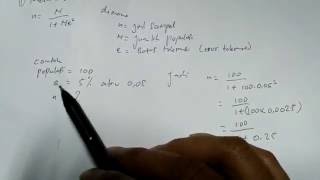 n = N / 1 + Ne²
dimana
n = jml sampel
N = jumlah populasi
e = batas toleransi (error tolerance)
contoh
populasi = 100
e = 5% atau 0,05
n = ?
jadi
n = 100 / 1 + 100.0.05²
= 100 / 1+(100x0.0025)
= 100 / + 0.25